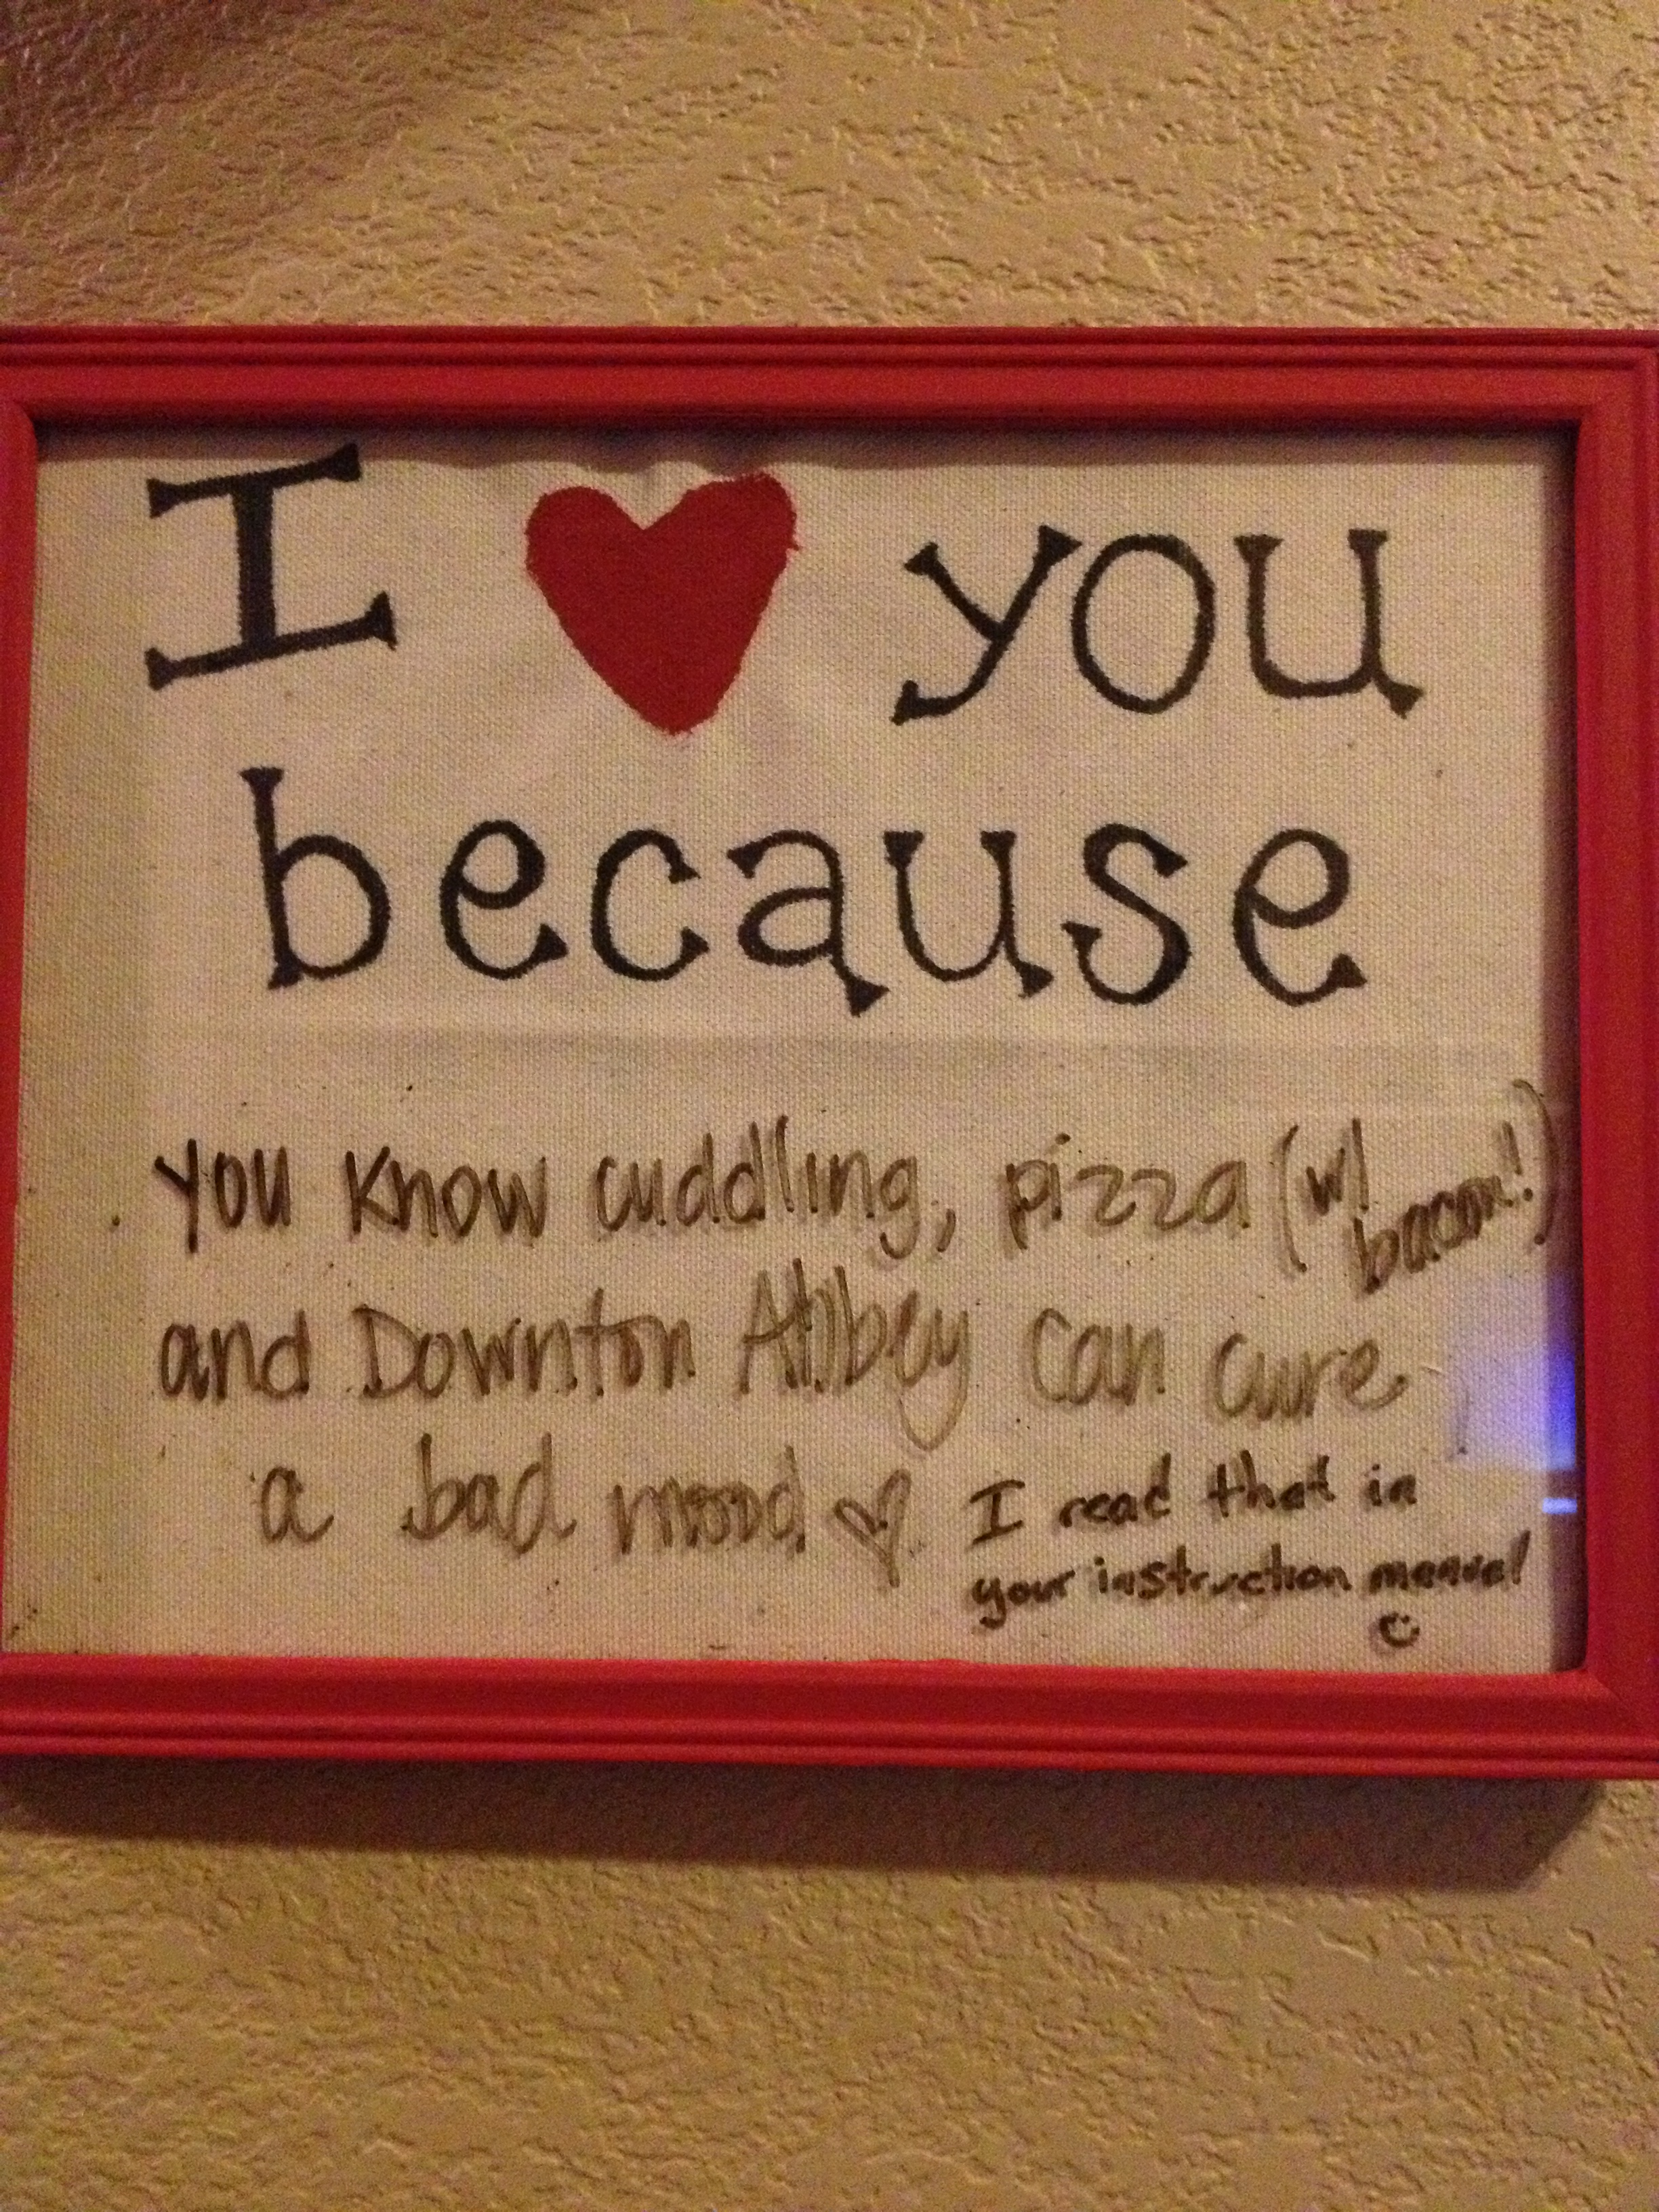 I ♥ you
because
you know cuddling, pizza (w/ bacon!)
and Downton Abbey can cure
a bad mood ♡
I read that in
your instruction manual
☺